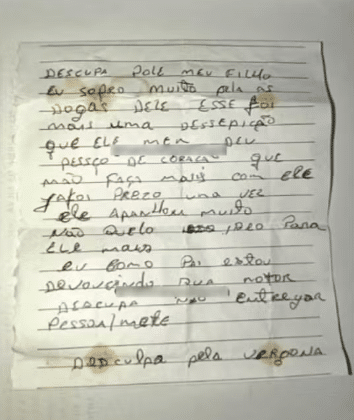 DESCUPA POLE MEU FILHO
EU SOPRO MUITO PELA AS
DOGAS DELE ESSE FOI
MAIS UMA DESSEPIÇÃO
QUE ELE MEU DEU
PESSÇO DE CORAÇÃO QUE
NÃO FAÇA MAIS COM ELE
JAFOI PREZO UMA VEZ
ELE APANHOU MUITO
NÃO QUELO PARA
ELE MAIS
EU COMO PAI ESTOU
DEVOUVENDO SUA MOTOR
DISCUPA NÃO ENTREGAR
PESSOALMETE
DESCULPA PELA VERGONA